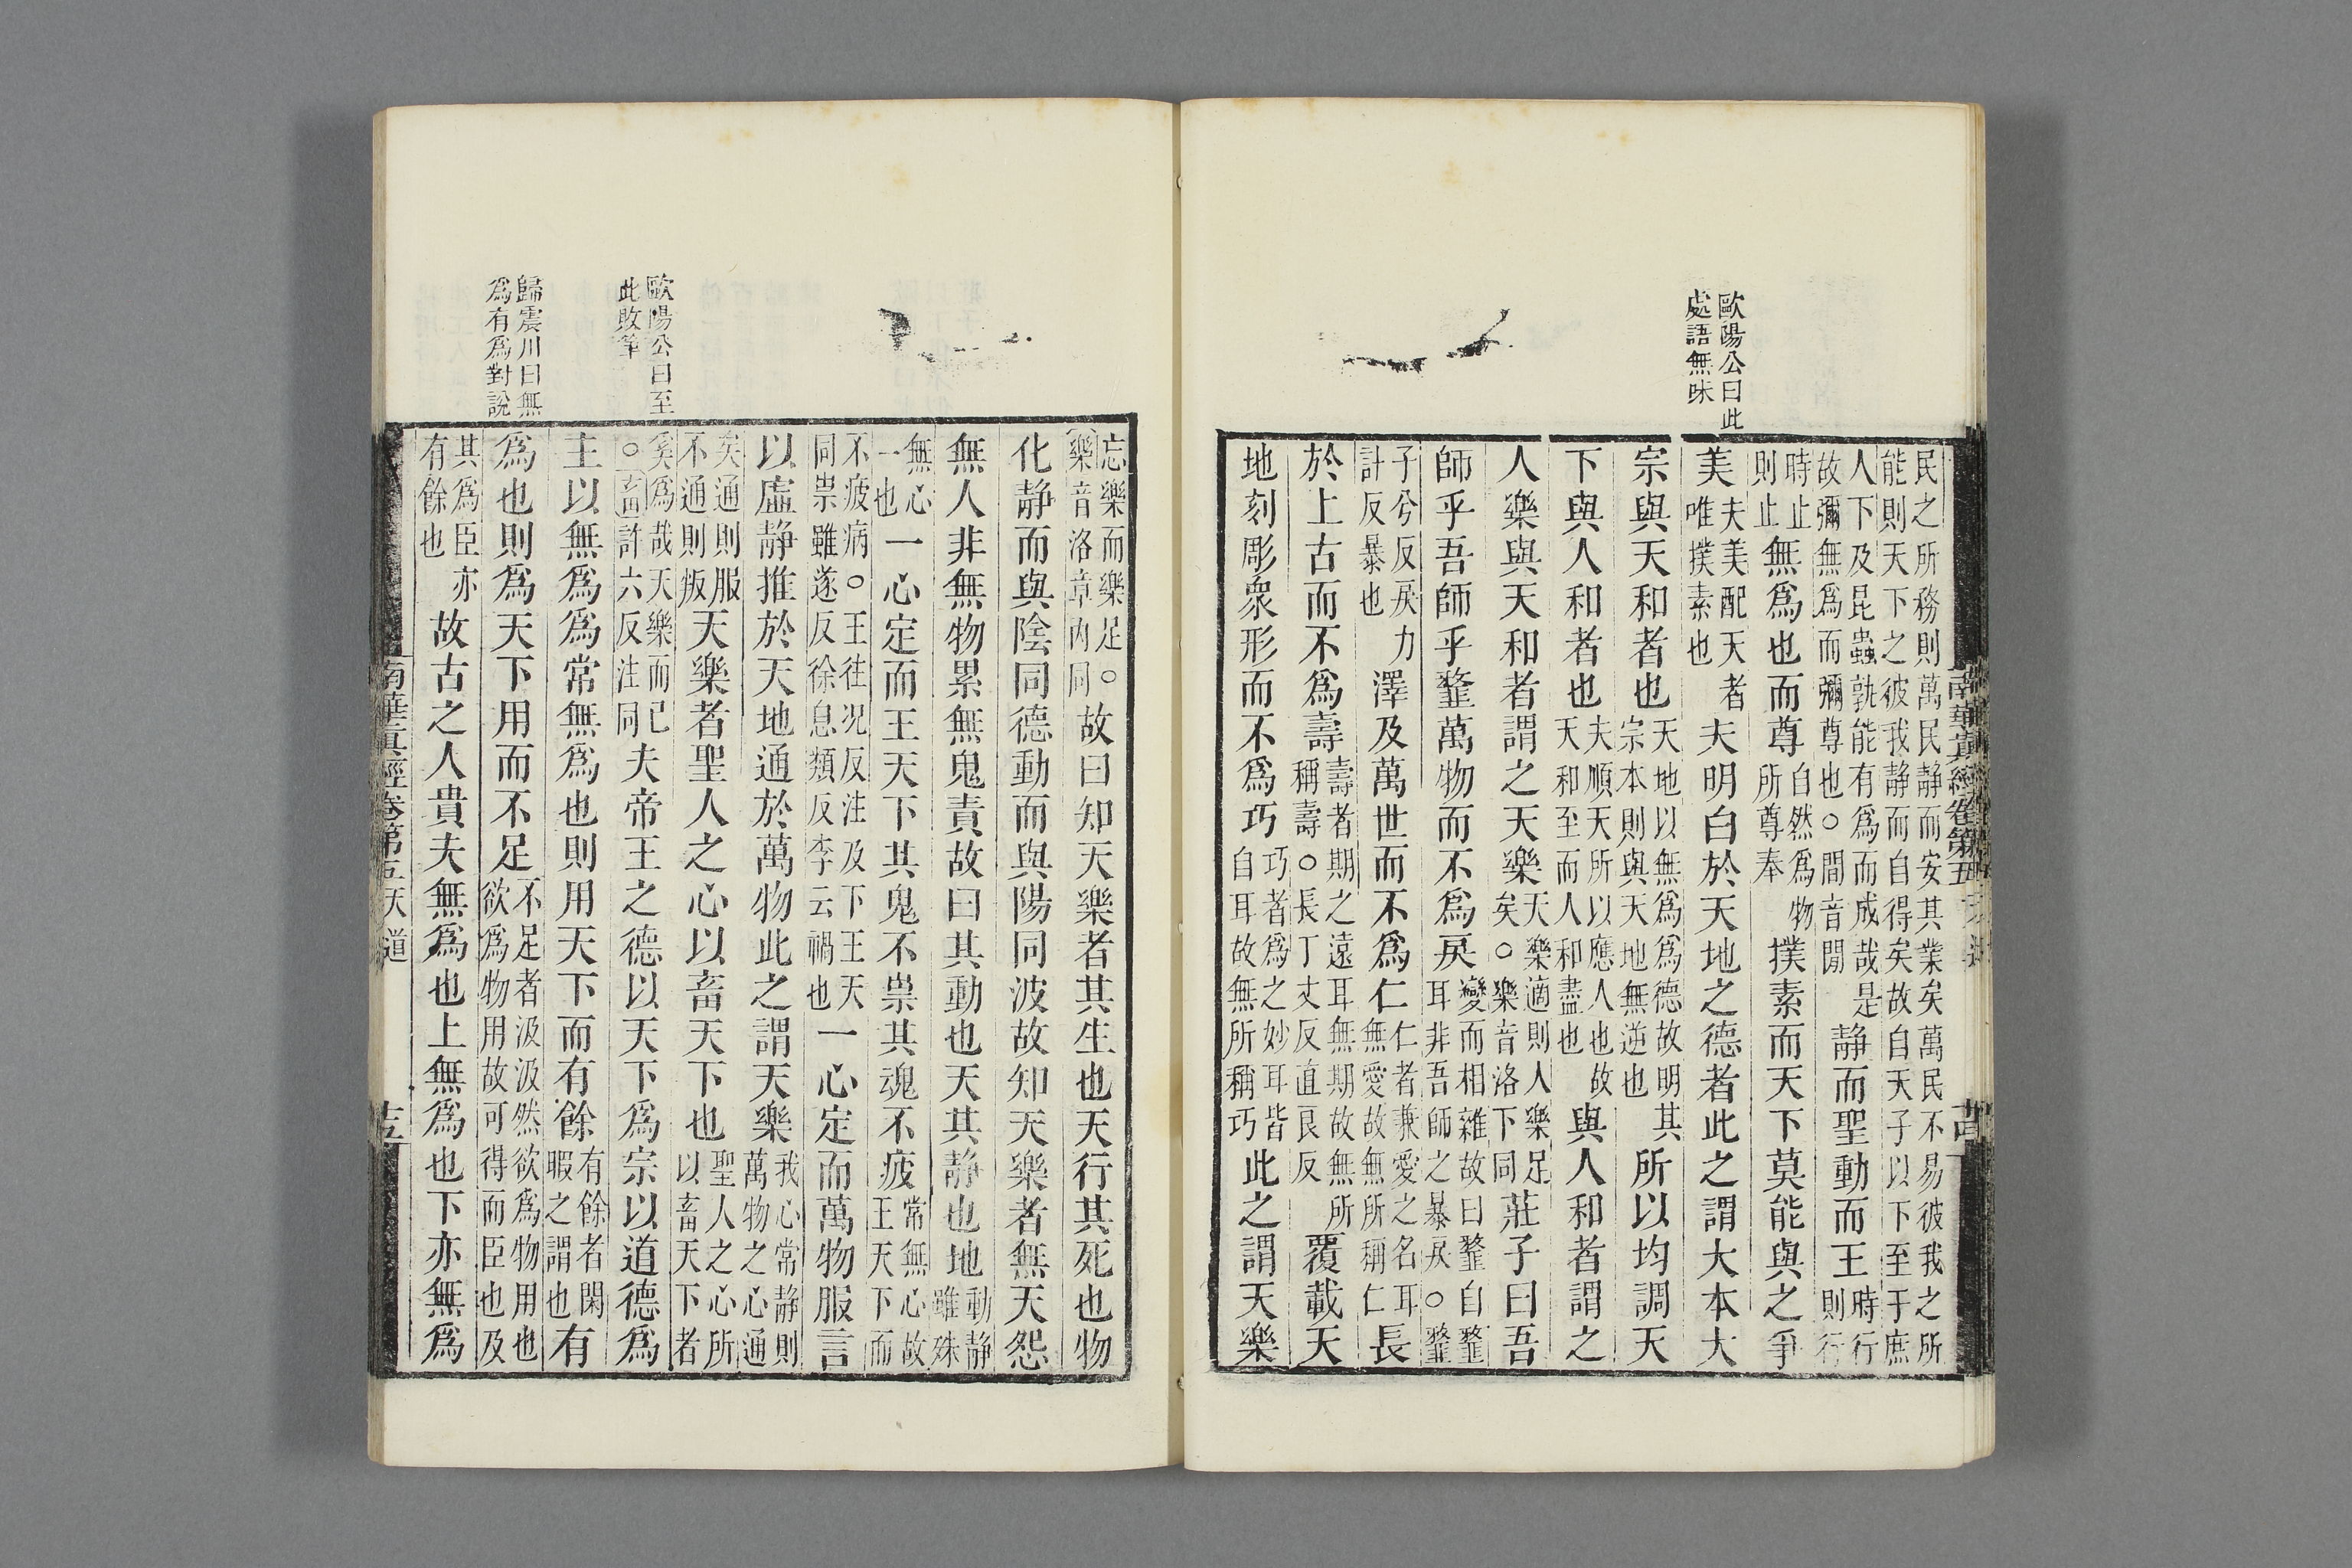 歐陽公曰此
處語無味
民之所務則萬民静而安其業矣萬民不易彼我之所能則天下之彼我静而自得矣故自天子以下至于庶
人下及昆蟲孰能有爲而成哉是故彌無爲而彌尊也○間音閒静而聖動而王時行則行
時止則止無爲也而尊自然爲物所尊奉撲素而天下莫能與之爭
美夫美配天者唯撲素也夫明白於天地之德者此之謂大本大
宗與天和者也天地以無爲爲德故明其宗本則與天地無逆也所以均調天
下與人和者也夫順天所以應人也故天和至而人和盡也與人和者謂之
人樂與天和者謂之天樂天樂適則人樂足矣○樂音洛下同莊子曰吾
師乎吾師乎䪠萬物而不爲戾變而相雜故曰䪠自䪠耳非吾師之暴戾○䪠
子兮反戾力計反暴也澤及萬世而不爲仁仁者兼愛之名耳無愛故無所稱仁長
於上古而不爲壽壽者期之遠耳無期故無所稱壽○長丁丈反直良反覆載天
地刻彫衆形而不爲巧巧者爲之妙耳皆自耳故無所稱巧此之謂天樂
南華真經卷第五
歐陽公曰至
此敗筆
歸震川曰無
爲有爲對說
忘樂而樂足○樂音洛章内同故曰知天樂者其生也天行其死也物
化静而與陰同德動而與陽同波故知天樂者無天怨
無人非無物累無鬼責故曰其動也天其静也地動静雖殊
無心一也一心定而王天下其鬼不祟其魂不疲常無心故王天下而
不疲病○王往况反注及下王天同祟雖遂反徐息類反李云禍也一心定而萬物服言
以虛静推於天地通於萬物此之謂天樂我心常静則萬物之心通
矣通則服不通則叛天樂者聖人之心以畜天下也聖人之心所以畜天下者
奚爲哉天樂而已○畜許六反注同夫帝王之德以天下爲宗以道德爲
主以無爲爲常無爲也則用天下而有餘有餘者閑暇之謂也有
爲也則爲天下用而不足不足者汲汲然欲爲物用也欲爲物用故可得而臣也及
其爲臣亦有餘也故古之人貴夫無爲也上無爲也下亦無爲
南華真經卷第五 天道